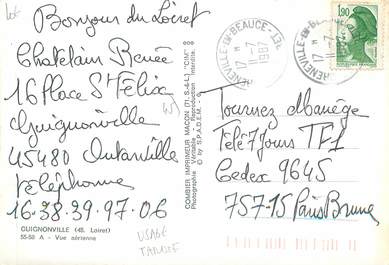 Bonjour du Loiret
Chatelain Renée
16 Place St Félix
Guignonville
45480 Outarville
téléphone
16.38.39.97.06
GUIGNONVILLE (45. Loiret)
55-50 A - Vue aérienne
COMBIER IMPRIMEUR MACON (71. S.-&-L.) "CIM"
Photographie Véritable - Reproduction interdite.
© by S.P.A.D.E.M. - G
17 H
11-7
1987
17 H
11-7
1,90
Tournez Manège
Télé 7 Jours TF1
Cedex 9645
757-15 Paris Brune
USAGE
TARDIF